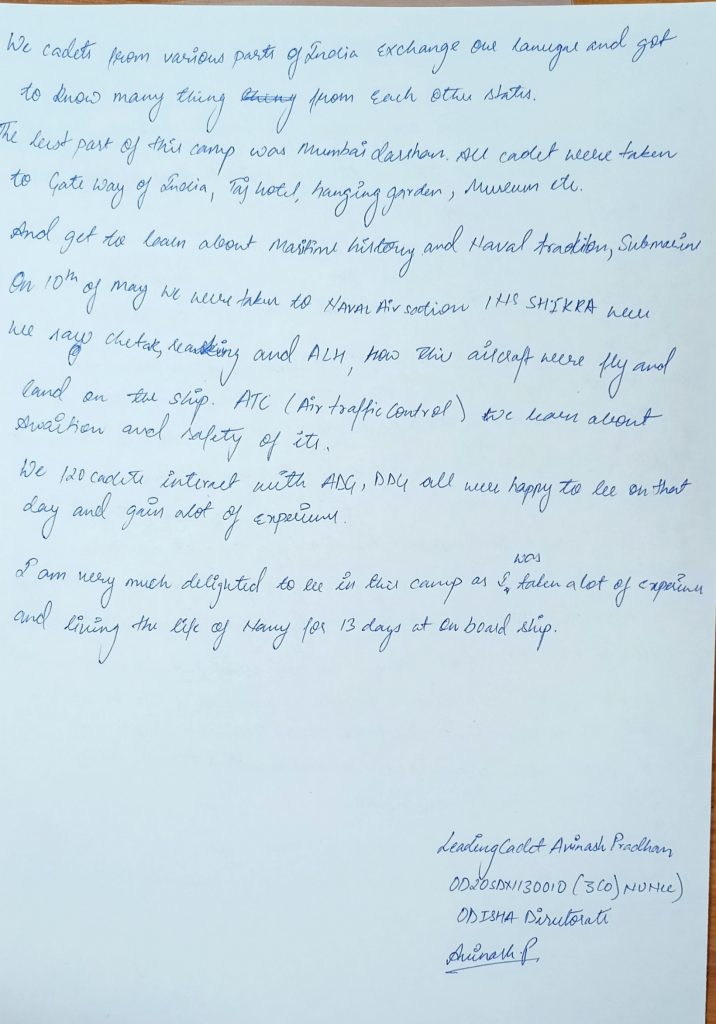 We cadets from various parts of India exchange our lanugue and got
to know many thing thing from each other states.
The best part of this camp was Mumbai darshan. All cadet were taken
to Gate Way of India, Taj hotel, hanging garden, Museum etc.
And get to learn about Maritime history and Naval tradition, Submarine
On 10th of May we were taken to Naval Air sation INS SHIKRA were
we saw chetak, seaking and ALH, how this aircraft were fly and
land on the ship. ATC (Air traffic control) we learn about
avaition and safety of its.
We 120 cadets interact with ADG, DDG all were happy to be on that
day and gain alot of experience.
I am very much delighted to be in this camp as I was taken alot of experience
and living the life of Navy for 13 days at on board ship.
Leading Cadet Avinash Pradhan
ODISHA Directorate
Avinash.P.